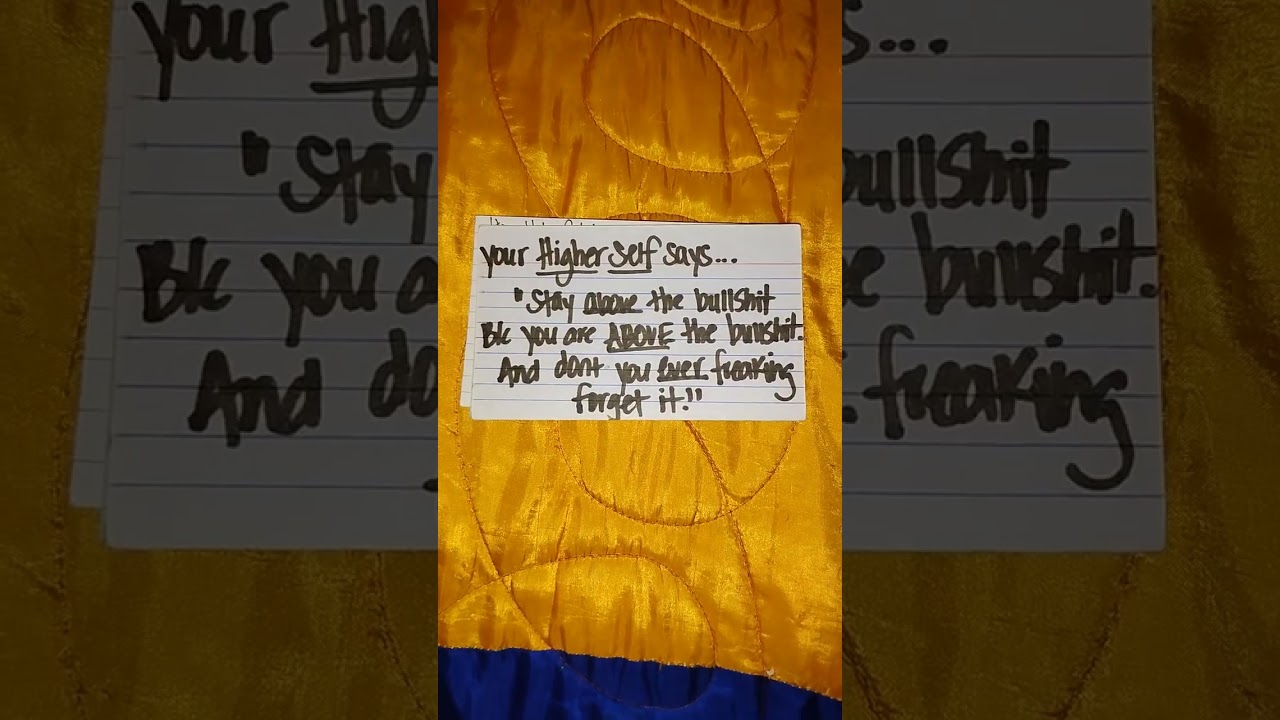 your Higher Self says...
"Stay above the bullshit
Bk you are ABOVE the bullshit.
And dont you ever freaking
forget it!"